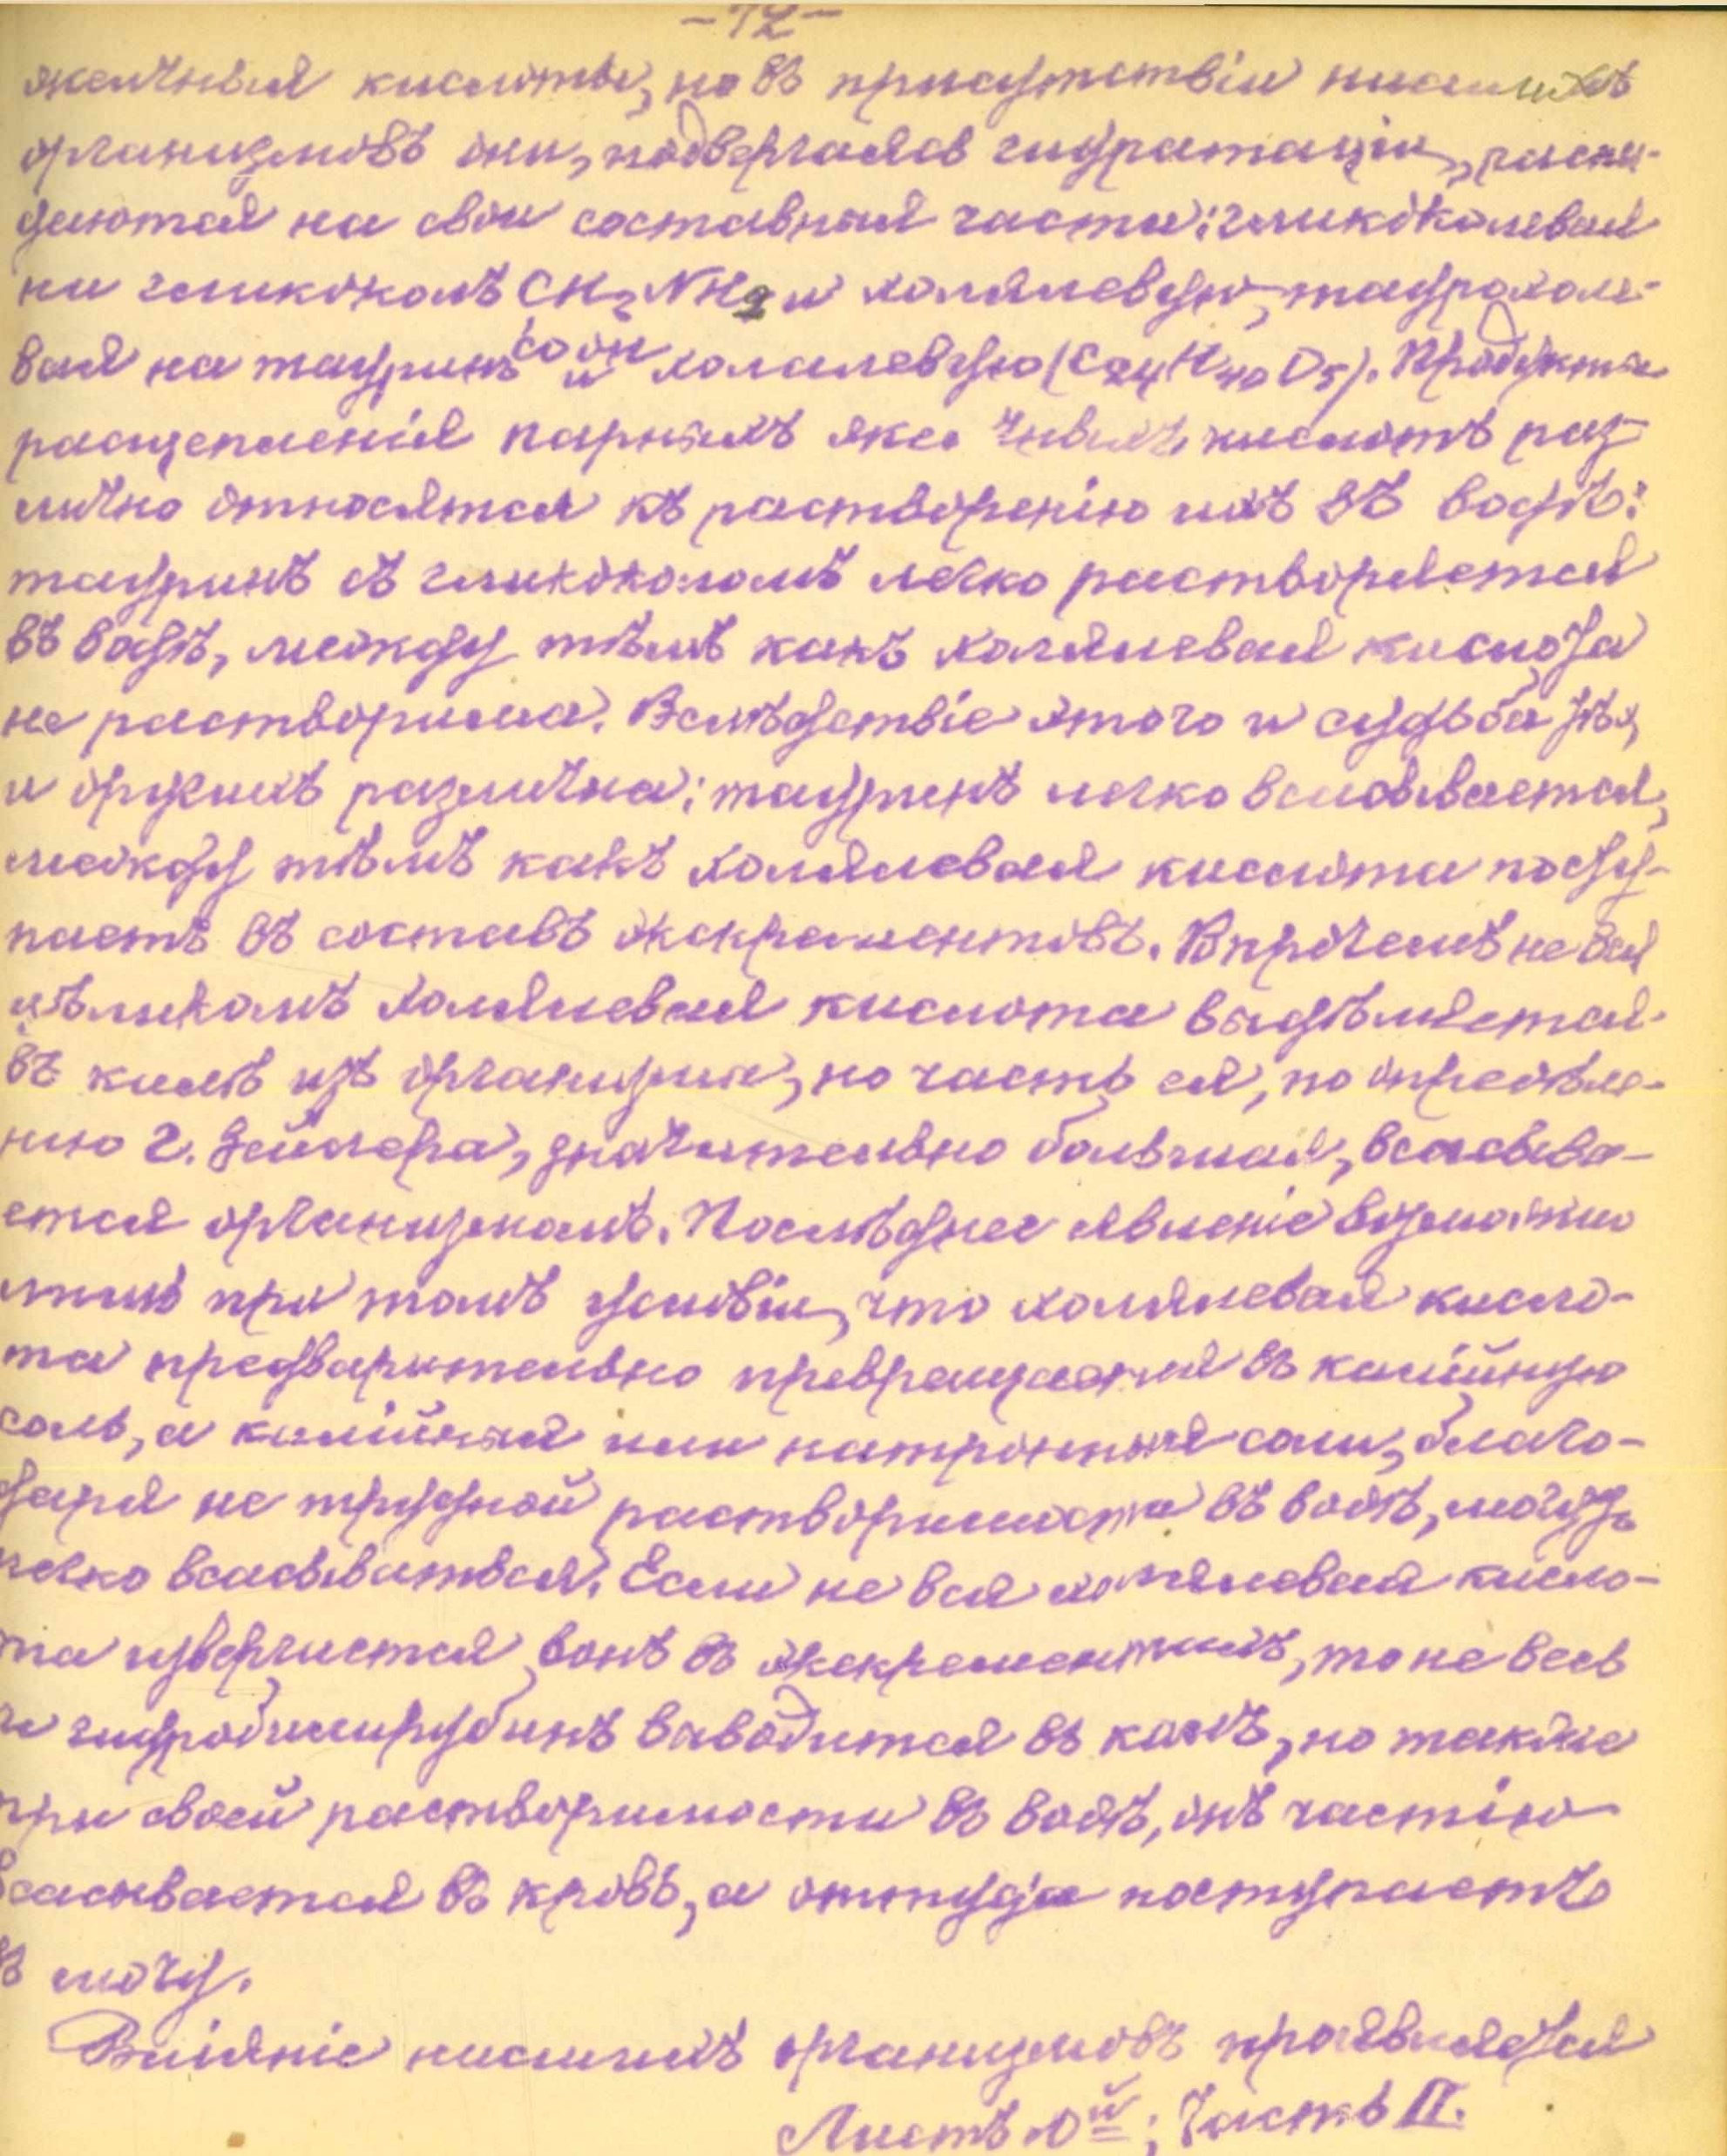 -72-
желчныя кислоты, но въ присутствіи низшихъ
организмовъ они, подвергаясь гидратаціи, распа-
даются на свои составныя части: гликохолевая
на гликоколъ CH2NH2 и холялевую, таурохоле-
COOH
вая на тауринъ и холалевую (C24H40O5). Продукты
расщепленія парныхъ желчныхъ кислотъ раз-
лично относятся къ растворенію ихъ въ водѣ:
тауринъ съ гликоколомъ легко растворяется
въ водѣ, между тѣмъ какъ холялевая кислота
не растворима. Вслѣдствіе этого и судьба тѣхъ
и другихъ различна: тауринъ легко всасывается,
между тѣмъ какъ холялевая кислота посту-
паетъ въ составъ экскрементовъ. Впрочемъ не вся
цѣликомъ холялевая кислота выдѣляется
въ калѣ изъ организма, но часть ея, по опредѣле-
нію г. Зейлера, значительно большая, всасыва-
ется организмомъ. Послѣднее явленіе возможно
лишь при томъ условіи, что холялевая кисло-
та предварительно превращается въ калійную
соль, а калійныя или натронныя соли, благо-
даря не трудной растворимости въ водѣ, могутъ
легко всасываться. Если не вся холялевая кисло-
та извергается вонъ въ экскрементахъ, то не весь
и гидробилирубинъ выводится въ калѣ, но также
при своей растворимости въ водѣ, онъ частію
всасывается въ кровь, а оттуда поступаетъ
въ мочу.
Вліяніе низшихъ организмовъ проявляется
Листъ 10й; Часть II.